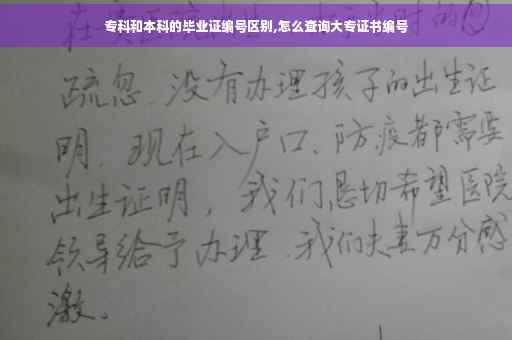 专科和本科的毕业证编号区别,怎么查询大专证书编号
疏忽.没有办理孩子的出生证
明.现在入户口、防疫都需要
出生证明，我们恳切希望医院
领导给予办理.我们夫妻万分感
激。